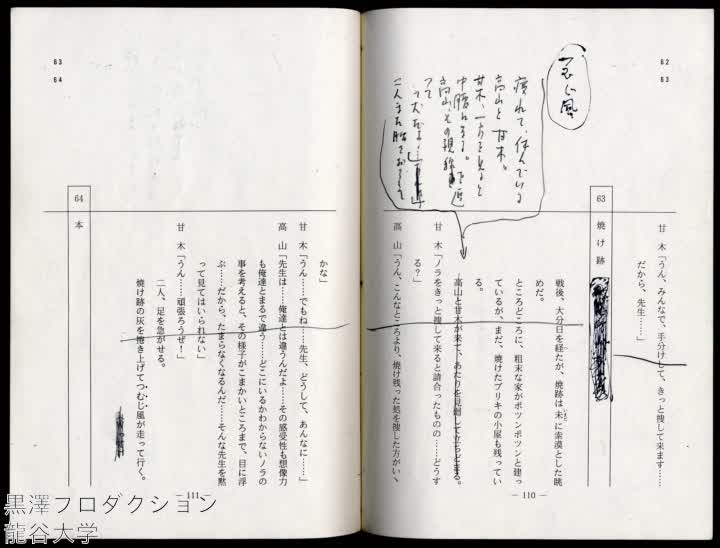 62
63
つむじ風
疲れて、休んでいる
高山と甘木。
甘木、一方を見ると
中腰になる。
高山、その視線を追
って
二人また腰をおろして
甘　木「うん、みんなで、手分けして、きっと捜して来ます……
だから、先生……」
63　焼け跡
戦後、大分日を経たが、焼跡は未だに索漠とした眺
めだ。
ところどころに、粗末な家がポツンポツンと建っ
ているが、まだ、焼けたブリキの小屋も残ってい
る。
高山と甘木が来て、あたりを見廻して立ちどまる。
甘　木「ノラをきっと捜して来ると請合ったものの……どうす
る？」
高　山「うん、こんなところより、焼け残った処を捜した方がいゝ
— 110 —
63
64
かな」
甘　木「うん……でもね……先生、どうして、あんなに……」
高　山「先生は……俺達とは違うんだよ……その感受性も想像力
も俺達とまるで違う……どこにいるかわからないノラの
事を考えると、その様子がこまかいところまで、目に浮
ぶ……だから、たまらなくなるんだ……そんな先生を黙
って見てはいられない」
甘　木「うん……頑張ろうぜ！」
二人、足を急がせる。
焼け跡の灰を捲き上げてつむじ風が走って行く。
64　本
— 111 —
黒澤プロダクション
龍谷大学